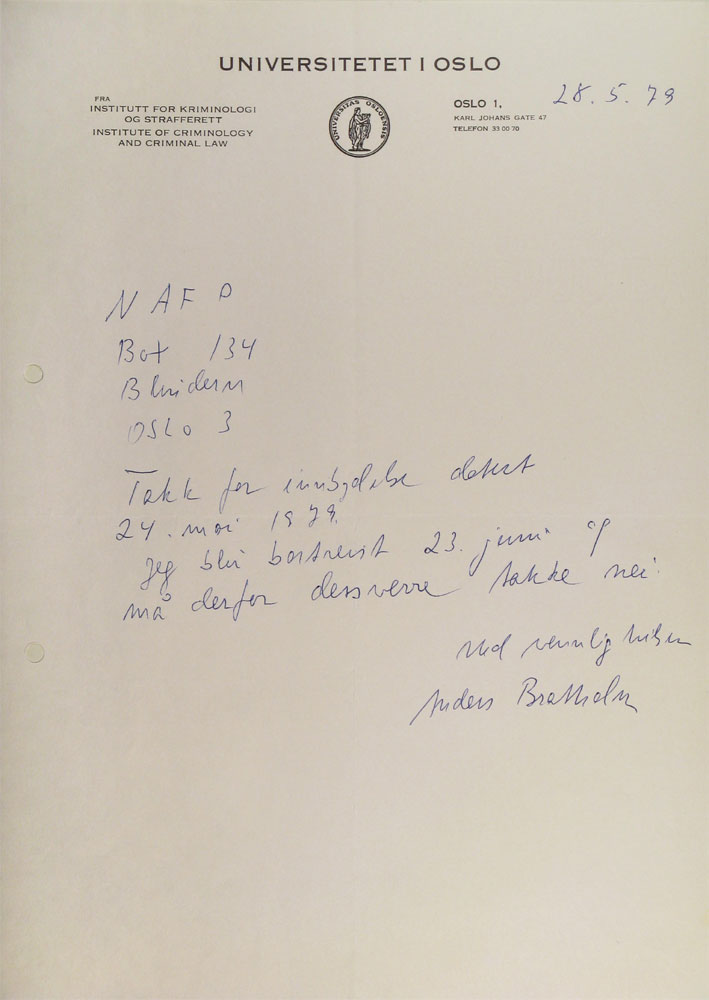 UNIVERSITETET I OSLO
FRA
INSTITUTT FOR KRIMINOLOGI
OG STRAFFERETT
INSTITUTE OF CRIMINOLOGY
AND CRIMINAL LAW
UNIVERSITAS OSLOENSIS
OSLO 1,
KARL JOHANS GATE 47
TELEFON 33 00 70
28.5.79
NAFP
Box 134
Blindern
OSLO 3
Takk for innbydelse datert
24. mai 1979.
Jeg blir bortreist 23. juni og
må derfor dessverre takke nei.
Med vennlig hilsen
Anders Bratholm